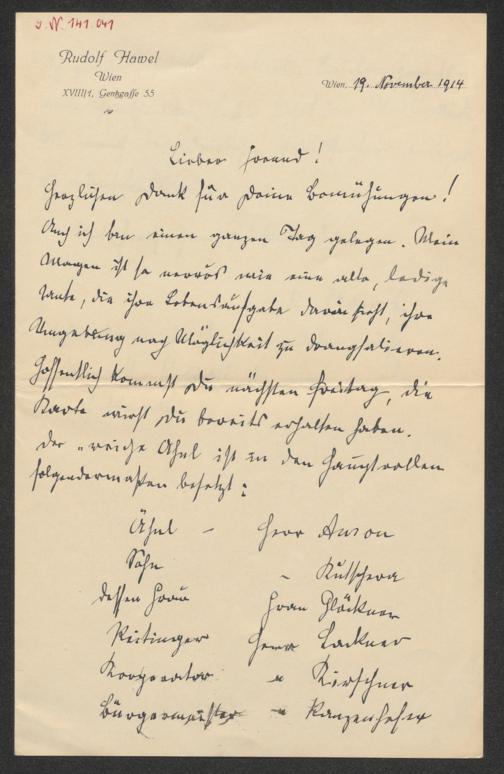 J.N. 141.041
Rudolf Hawel
Wien
XVIII/1, Gentzgasse 55
Wien, 19. November 1914
Lieber Freund!
Herzlichen Dank für Deine Bemühungen!
Auch ich bin einen ganzen Tag gelegen. Mein
Magen ist so nervös wie eine alte, ledige
Tante, die ihre Lebensaufgabe darin sieht, ihre
Umgebung nach Möglichkeit zu drangsalieren.
Hoffentlich kommst Du nächsten Freitag, die
Karte wirst Du bereits erhalten haben.
Der „reiche Ähnl ist in den Hauptrollen
folgendermaßen besetzt:
Ähnl – Herr Anson
Sohn – Kutschera
dessen Frau Frau Glöckner
Herr Lackner
Kooperator " Kirschner
Bürgermeister "